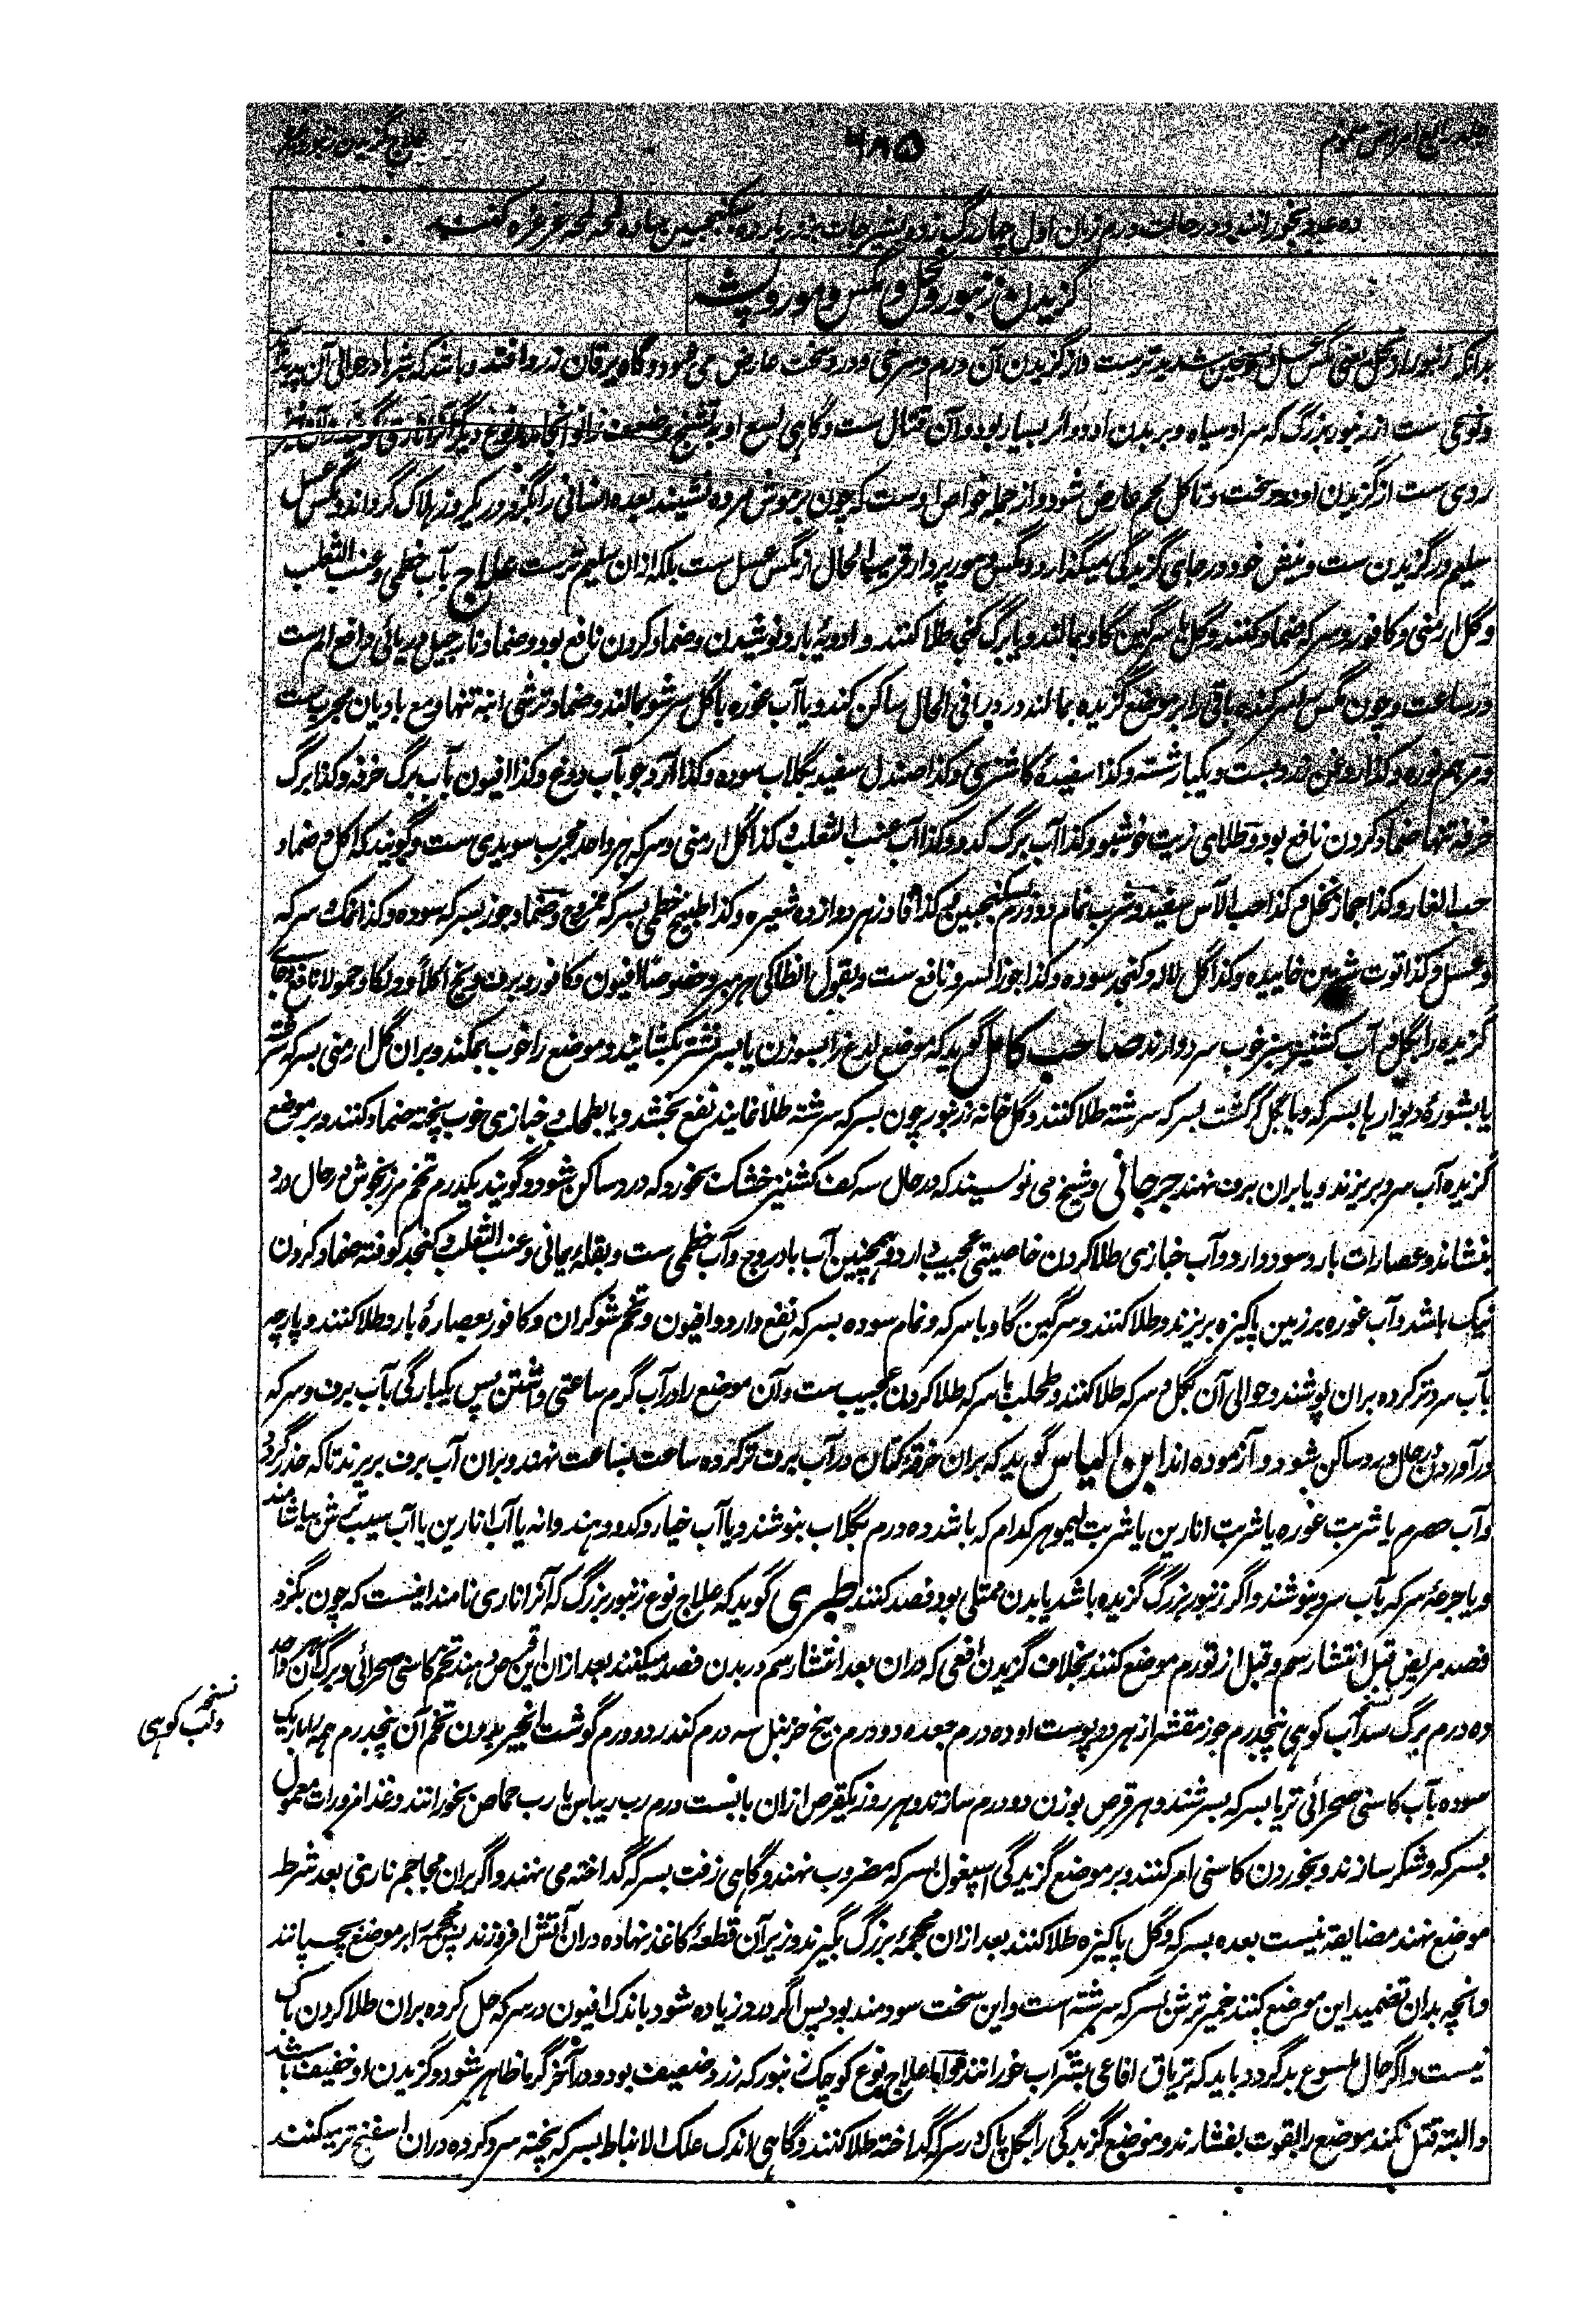 ۶۸۵
گزیدن زنبور و نحل و مگس و مور و پشه
بدانکه زنبور از نحل یعنی مگس عسل شدیدتر ست و از گزیدن آن ورم و سرخی و درد سخت عارض می شود و گاه یرقان
و نوعی ست از زنبور بزرگ که سر او سیاه و بر بدن او دوائر بسیار بود و آن قتال ست و گاهی لسع او به تشنج و ضعف زانو انجامد و نوع دیگر
ردی ست از گزیدن او درد سخت و تاکل لحم عارض شود و از جمله خواص اوست که چون بر موش مرده نشیند بعده انسانی را بگزد در یکروز هلاک گرداند و مگس عسل
سلیم در گزیدن ست و نیش خود در جای گزیدگی میگذارد و مگس و مور پردار قریب الحال از مگس عسل ست بلکه ازان سلیم تر ست علاج بآب خطمی و عنب الثعلب
و گل ارمنی و کافور و سرکه ضماد کنند و گل با سرگین گاو بمالند و یا برگ کنجد طلا کنند و ادویه بارد نوشیدن و ضماد کردن نافع بود و ضماد نارجیل دریائی دافع الم ست
در ساعت و چون مگس را سر کنده باقی را بر موضع گزیده بمالند درد را فی الحال ساکن کند و یا آب غوره با گل سرشو بمالند و ضماد ترشی انبه تنها و مع بادیان مجرب ست
و مرهم نوره و کذا روغن زرد بست و یکبار شسته و کذا سفیده کاشغری و کذا صندل سفید بگلاب سوده و کذا آرد جو بآب دوغ و کذا افیون بآب برگ خرفه و کذا برگ
خرفه تنها ضماد کردن نافع بود و طلای زیت خوشبو و کذا آب برگ کدو و کذا آب عنب الثعلب و کذا گل ارمنی و سرکه هر واحد مجرب سویدی ست و گویند که اکل و ضماد
حب الغار و کذا جمار نخل و کذا حب الآس مفید و شرب نمام دو درم بسکنجبین و کذا فادزهر دوازده شعیره و کذا طبیخ خطمی بسرکه ممزوج و ضماد جوز بسرکه سوده و کذا نمک و سرکه
و عسل و کذا توت شیرین خاییده و کذا گل لاله و کنجد سوده و کذا جوز السرو نافع ست و بقول انطاکی هر مبرد خصوصاً افیون و کافور و برف و یخ اکلاً و دلکاً و حمولاً نافع و جای
گزیده را بگل و آب کشنیز سبز خوب سرد دارند صاحب کامل گوید که موضع لدغ را بسوزن یا بسر نشتر بکشایند و موضع را خوب بمکند و بران گل ارمنی بسرکه سرشته
یا بشوره دیوارها بسرکه و یا بگل گرگشت بسرکه سرشته طلا کنند و گل خانه زنبور چون بسرکه سرشته طلا نمایند نفع بخشد و یا بطحلب و خبازی خوب پخته ضماد کنند و بر موضع
گزیده آب سرد بریزند و یا بران برف نهند جرجانی و شیخ می نویسند که در حال سه کف کشنیز خشک بخورد که درد ساکن شود و گویند یکدرم تخم مرزنجوش در حال درد
بنشاند و عصارات بارد سود دارد و آب خبازی طلا کردن خاصیتی عجیب دارد و همچنین آب بادروج و آب خطمی ست و بقله یمانی و عنب الثعلب و کنجد کوفته ضماد کردن
نیک باشد و آب غوره بر زمین پاکیزه بریزند و طلا کنند و سرگین گاو با سرکه و نمام سوده بسرکه نفع دارد و افیون و تخم شوکران و کافور بعصاره بارد طلا کنند و پارچه
بآب سرد تر کرده بران پوشند و حوالی آن بگل و سرکه طلا کنند و طحلب با سرکه طلا کردن عجیب ست و آن موضع را در آب گرم ساعتی داشتن پس یکبارگی بآب برف و سرکه
در آوردن در حال درد ساکن شود و آزموده اند ابن الیاس گوید که بران خرقه کتان در آب برف تر کرده ساعت بساعت نهند و بران آب برف بریزند تا که خدر گردد
و آب حصرم یا شربت غوره یا شربت انارین یا شربت لیمو هر کدام که باشد ده درم بگلاب بنوشند و یا آب خیار و کدو و هندوانه یا آب انارین یا آب سیب ترش بیاشامند
و یا جرعه سرکه بآب سرد بنوشند و اگر زنبور بزرگ گزیده باشد یا بدن ممتلی بود فصد کنند طبری گوید که علاج نوع زنبور بزرگ که آنرا ناری نامند اینست که چون بگزد
فصد مریض قبل انتشار سم و قبل از تورم موضع کنند بخلاف گزیدن افعی که دران بعد انتشار سم در بدن فصد میکنند بعد ازان این قرص دهند تخم کاسنی صحرائی و برگ آن هر واحد
ده درم برگ سداب کوهی پنجدرم جوز مقشر از هر دو پوست او ده درم جعده دو درم بیخ حزنبل سه درم کندر دو درم گوشت انجیر بدون تخم آن پنجدرم همه را باریک
نسخه دلب کوهی
سوده بآب کاسنی صحرائی تر یا بسرکه بسرشند و هر قرص بوزن دو درم سازند و هر روز یکقرص ازان با بست درم رب ریباس یا رب حماض بخورانند و غذا مزورات معمول
بسرکه و شکر سازند و بخوردن کاسنی امر کنند و بر موضع گزیدگی اسپغول بسرکه مضروب نهند و گاهی زفت بسرکه گداخته می نهند و اگر بران محاجم ناری بعد شرط
موضع نهند مضایقه نیست بعده بسرکه و گل پاکیزه طلا کنند بعد ازان محجمه بزرگ بگیرند و زیر آن قطعه کاغذ نهاده دران آتش افروزند پس محجمه را بر موضع بچسپانند
و آنچه بدان تضمید این موضع کنند خمیر ترش بسرکه سرشته است و این سخت سودمند بود پس اگر درد زیاده شود باندک افیون در سرکه حل کرده بران طلا کردن باک
نیست و اگر حال ملسوع بد گردد باید که تریاق افاعی بشراب خورانند و اما علاج نوع کوچک زنبور که زرد ضعیف بود و در آخر گرما ظاهر شود و گزیدن او خفیف باشد
و البته قتل نکند موضع را بقوت بفشارند و موضع گزیدگی را بگل پاک در سرکه گداخته طلا کنند و گاهی اندک علک الانباط بسرکه پخته سرد کرده دران اسفنج تر میکنند